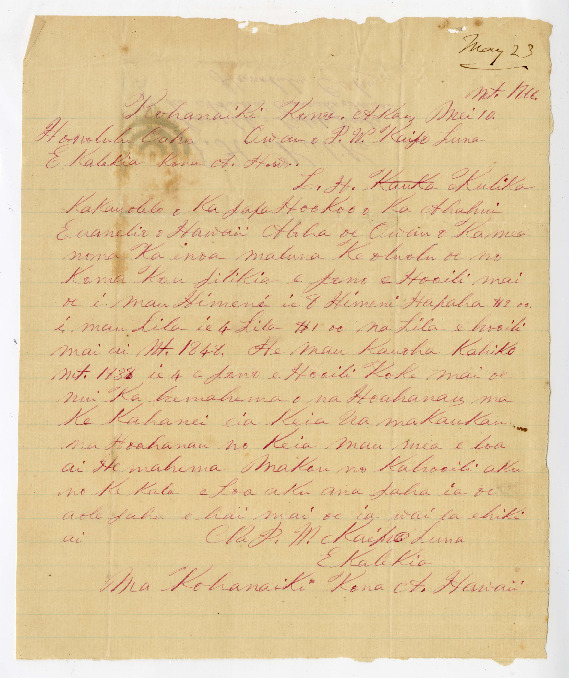 May 23
Kohanaiki Kona. Akau Mei 10
Honolulu Oahu Owau o P. W. Luna
Ekalikia Kona A. Haw.
L. H. Kauka Kulika
Kakauolelo o Ka papa Hookoo o Ka Ahahui
Euanelio o Hawaii Aloha oe Owau o Kamea
nona Ka inoa maluna Ke oluolu oe no
Koma Kou pilikia e pono e Hooili mai
oe i mau Himeni ie 8 Himeni Hapaha #2 00
i mau Lila ie 4 Lila #1 00 na Lila e hooili
mai ai Mt. 184 He mau Kauoha Kahiko
Mt. 183 ie 4 a pono e Hooili Koke mai oe
nui Ka hemahema o na Hoahanau, ma
Ke Kahanei eia Keia ua makaukau
na Hoahanau no Keia mau mea e loa
ai He mahema Makou no Kahooili aku
no Ke Kala e Loa aku ana paha ia oe
aole paha e hai mai oe ia wai la ehiki
ai P. W. Luna
Ekalikia
Ma Kohanaiki Kona A. Hawaii